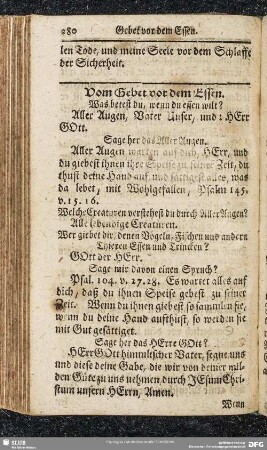 280 Gebet vor dem Essen.
len Tode, und meine Seele vor dem Schlaffe
der Sicherheit.
Vom Gebet vor dem Essen.
Was betest du, wenn du essen wilt?
Aller Augen, Vater Unser, und: HErr
GOtt.
Sage her das Aller Augen.
Aller Augen warten auf dich, HErr, und
du giebest ihnen ihre Speise zu seiner Zeit, du
thust deine Hand auf und sättigest alles, was
da lebet, mit Wohlgefallen, Psalm 145.
v. 15. 16.
Welche Creaturen verstehest du durch Aller Augen?
Alle lebendige Creaturen.
Wer giebet dir, denen Vögeln, Fischen und andern
Thieren Essen und Trincken?
GOtt der HErr.
Sage mir davon einen Spruch?
Psal. 104. v. 27. 28. Es wartet alles auf
dich, daß du ihnen Speise gebest zu seiner
Zeit. Wenn du ihnen giebest so sammlen sie,
wenn du deine Hand aufthust, so werden sie
mit Gut gesättiget.
Sage her das HErre GOtt?
HErr GOtt himmlischer Vater, segne uns
und diese deine Gabe, die wir von deiner mil-
den Güte zu uns nehmen durch JEsum Chri-
stum unsern HErrn, Amen.
Wenn
SLUB